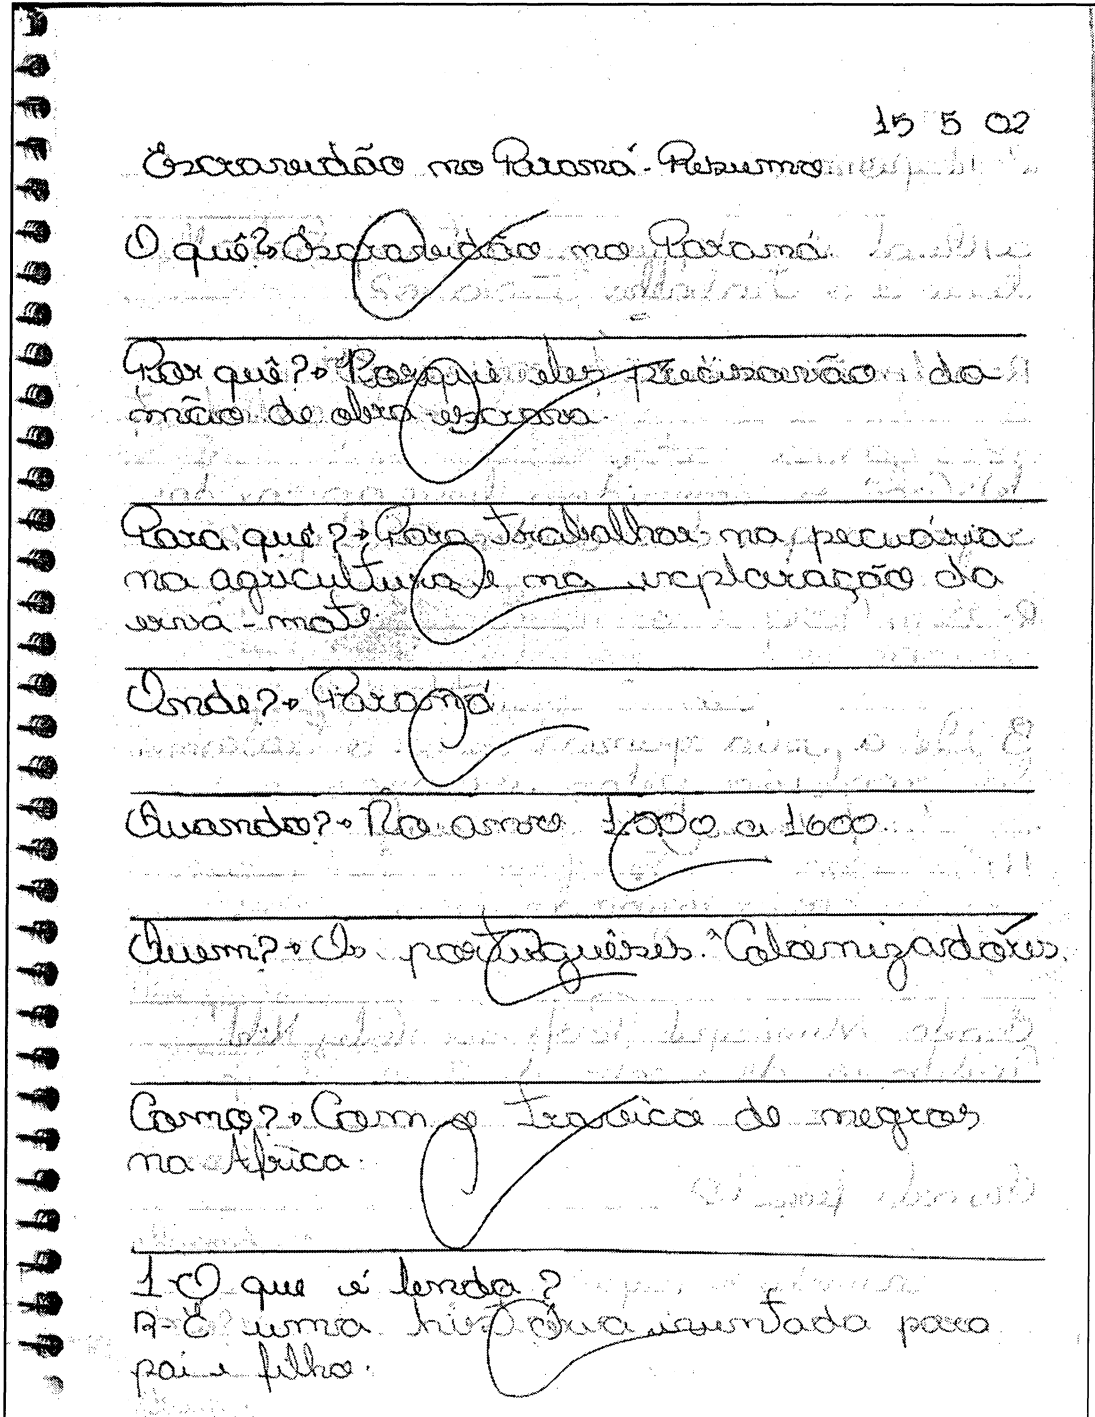 15 5 02
Escravidão no Paraná - Resumo
O quê?→ Escravidão no Paraná
Por quê?→ Porque eles precisavão da
mão de obra escrava.
Para quê?→ Para trabalhar na pecuária
na agricultura e na explaração da
erva-mate.
Onde?→ Paraná
Quando?→ No ano 1500 a 1600.
Quem?→ Os portuguêses. Colonizadores.
Como?→ Com o tráfico de negros
na África.
1-O que é lenda?
R-É uma história para
pai e filho.